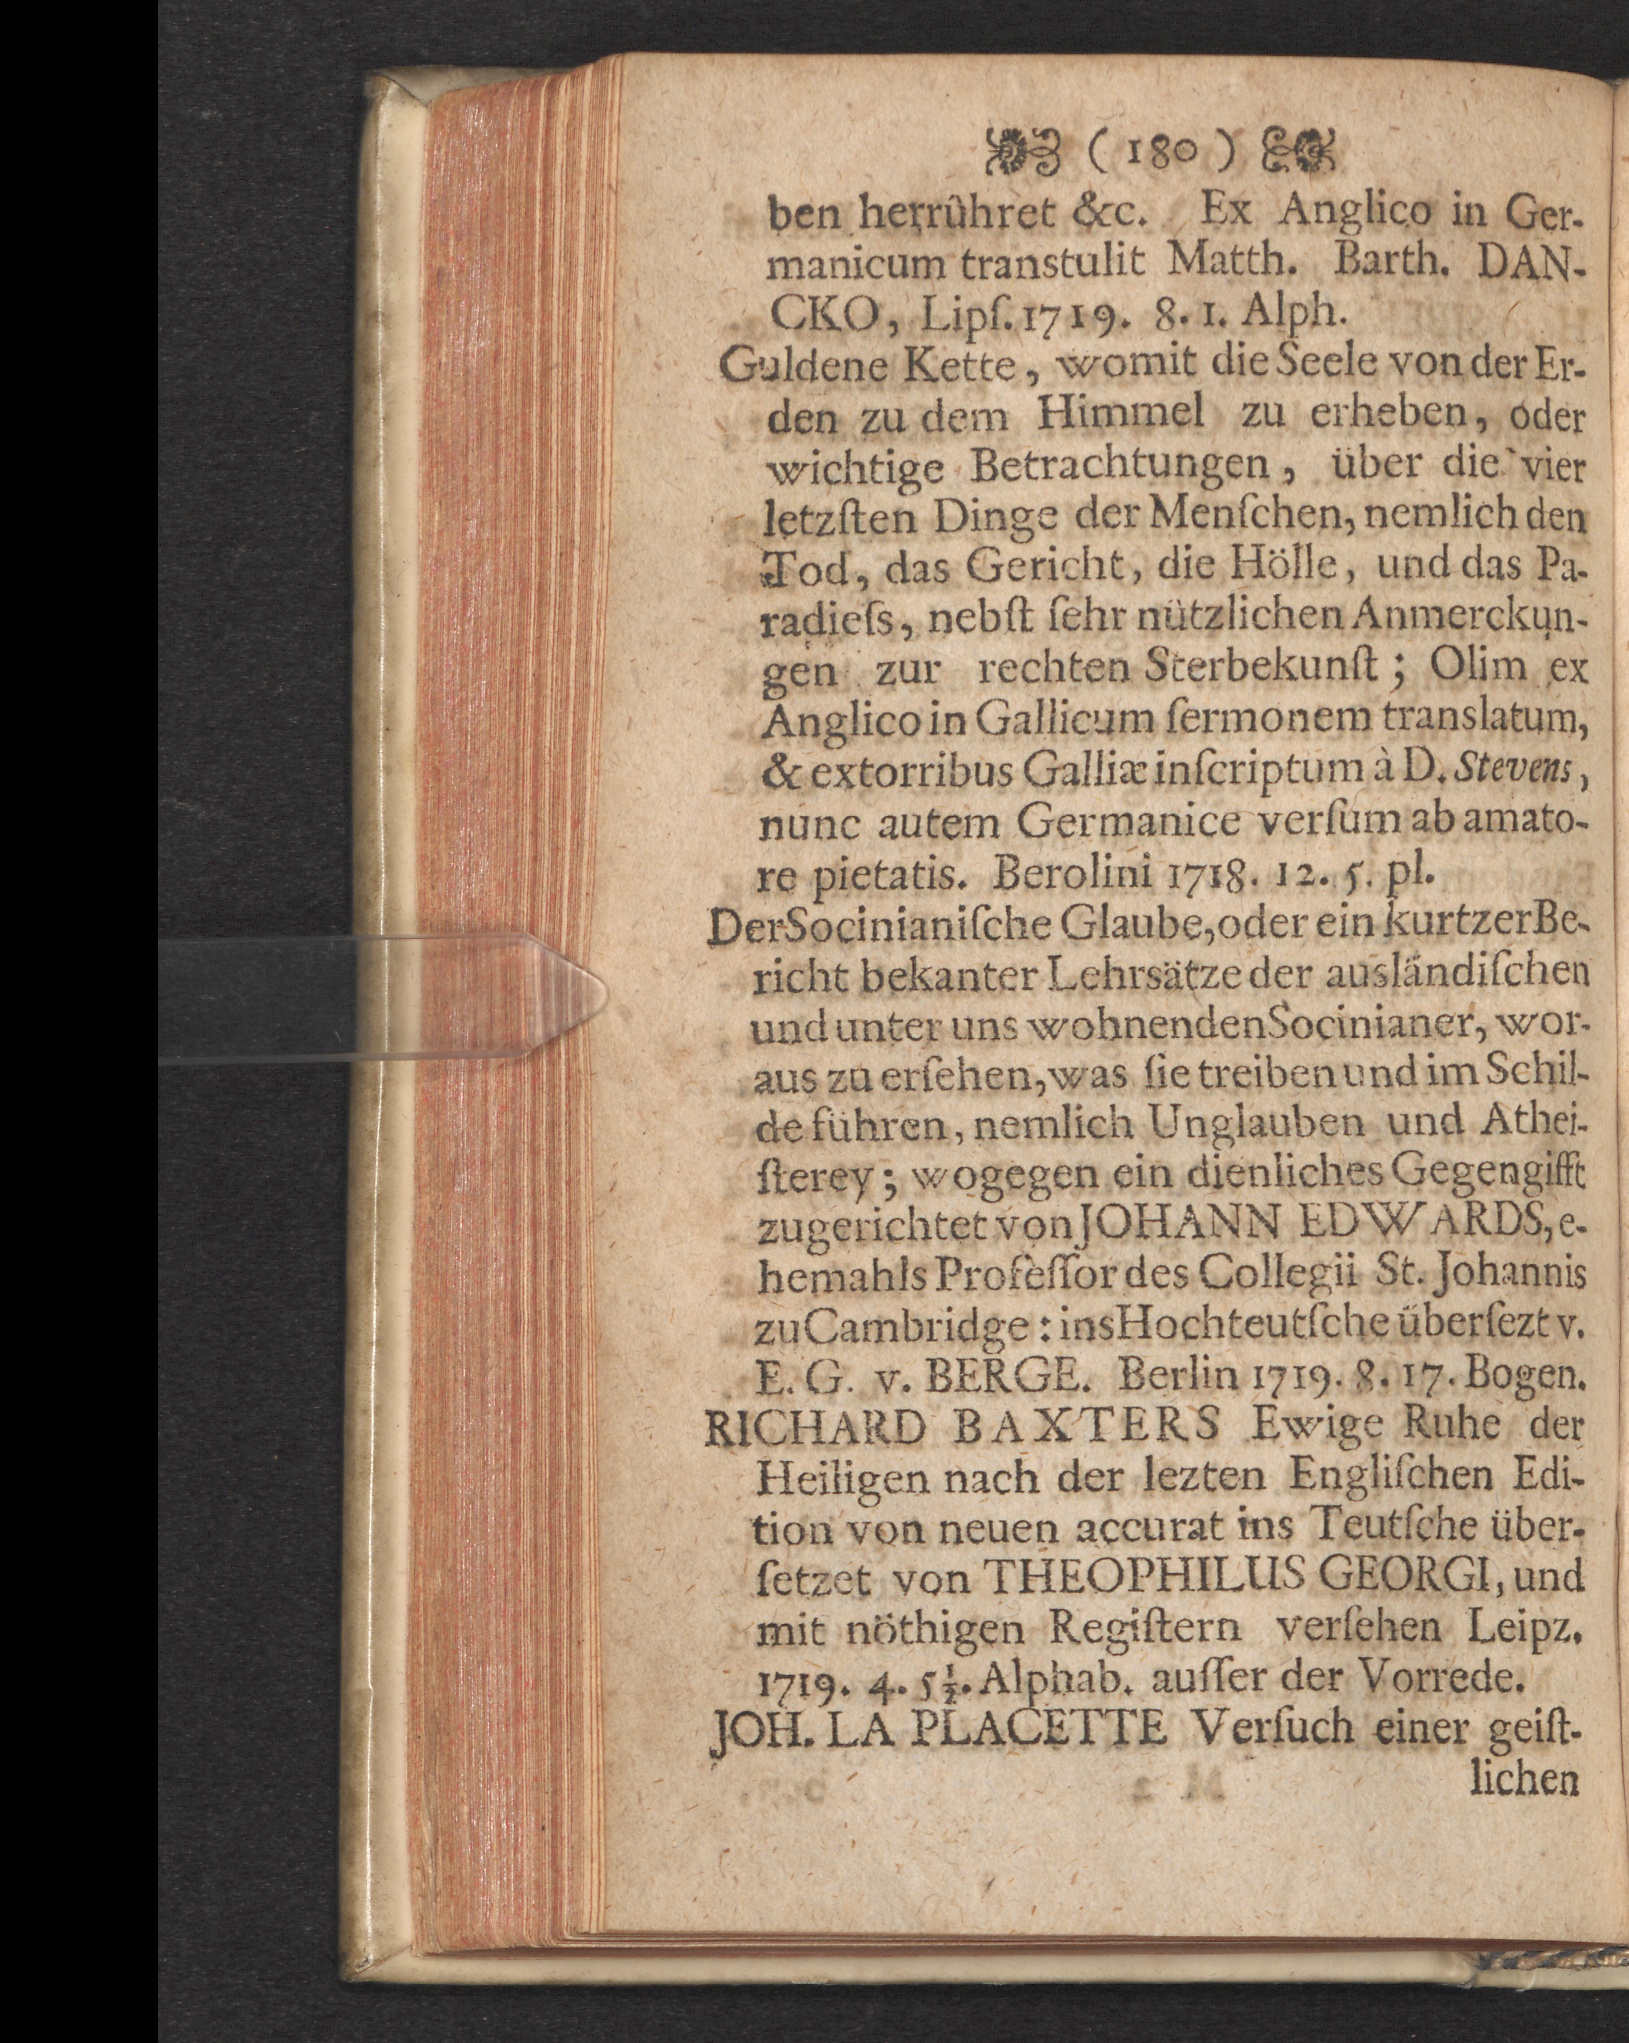 ( 180 )
ben herrûhret &c. Ex Anglico in Ger-
manicum transtulit Matth. Barth. DAN-
CKO, Lipſ. 1719. 8. 1. Alph.
Guldene Kette, womit die Seele von der Er-
den zu dem Himmel zu erheben, oder
wichtige Betrachtungen, über die vier
letzſten Dinge der Menſchen, nemlich den
Tod, das Gericht, die Hölle, und das Pa-
radieſs, nebſt ſehr nützlichen Anmerckun-
gen zur rechten Sterbekunſt; Olim ex
Anglico in Gallicum ſermonem translatum,
& extorribus Galliæ inſcriptum à D. Stevens,
nunc autem Germanice verſum ab amato-
re pietatis. Berolini 1718. 12. 5. pl.
Der Socinianiſche Glaube, oder ein kurtzer Be-
richt bekanter Lehrsätze der ausländiſchen
und unter uns wohnenden Socinianer, wor-
aus zu erſehen, was ſie treiben und im Schil-
de führen, nemlich Unglauben und Athei-
ſterey; wogegen ein dienliches Gegengifft
zugerichtet von JOHANN EDWARDS, e-
hemahls Profeſſor des Collegii St. Johannis
zu Cambridge: ins Hochteutſche überſezt v.
E. G. v. BERGE. Berlin 1719. 8. 17. Bogen.
RICHARD BAXTERS Ewige Ruhe der
Heiligen nach der lezten Engliſchen Edi-
tion von neuen accurat ins Teutſche über-
ſetzet von THEOPHILUS GEORGI, und
mit nöthigen Regiſtern verſehen Leipz.
1719. 4. 5½. Alphab. auſſer der Vorrede.
JOH. LA PLACETTE Verſuch einer geiſt-
lichen